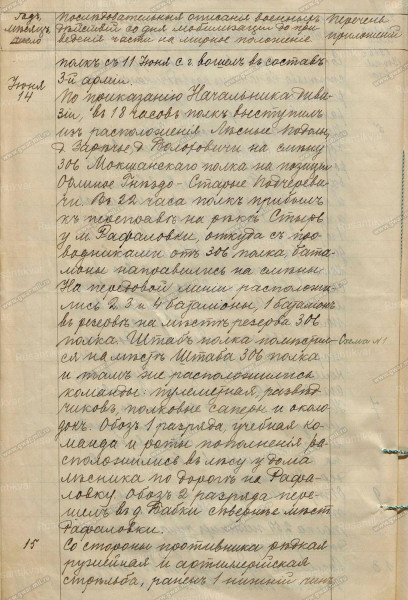 Годъ, мѣсяцъ, число
Послѣдовательныя описанія военныхъ дѣйствій со дня мобилизаціи до приведенія части на мирное положеніе
Перечень приложеній
полкъ съ 11 Іюня с.г. вошелъ въ составъ
3-й арміи.
Іюня
14
По приказанію Начальника диви-
зіи, въ 18 часовъ полкъ выступилъ
изъ расположенія Лѣсные
д. Заречье, д. Полоровичи на смѣну
306 Мокшанскаго полка на позицію
Орлиное Гнѣздо - Старые Подчеревичи
чи. Въ 22 часа полкъ прибылъ
къ переправѣ на рѣкѣ Стырь
у м. Рафаловки, откуда съ про-
водниками отъ 306 полка, бата-
ліоны направились на смѣну.
На передовой линіи расположи-
лись 2 3 и 4 баталіоны, 1 баталіонъ
въ резервѣ на мѣстѣ резерва 306
полка. Штабъ полка помѣстил-
Схема №1
ся на мѣстѣ Штаба 306 полка
и тамъ же расположились
команды: пулеметная, развѣд-
чиковъ, полковые саперы и около-
докъ. Обозъ 1 разряда, учебная ко-
манда и роты пополненія ра-
сположились въ лѣсу у дома
лѣсника по дорогѣ на Рафа-
ловку. Обозъ 2 разряда пере-
шелъ въ д. Бабки сѣвернѣе мѣст.
Рафаловки.
15
Со стороны противника рѣдкая
ружейная и артиллерійская
стрѣльба, раненъ 1 нижній чинъ